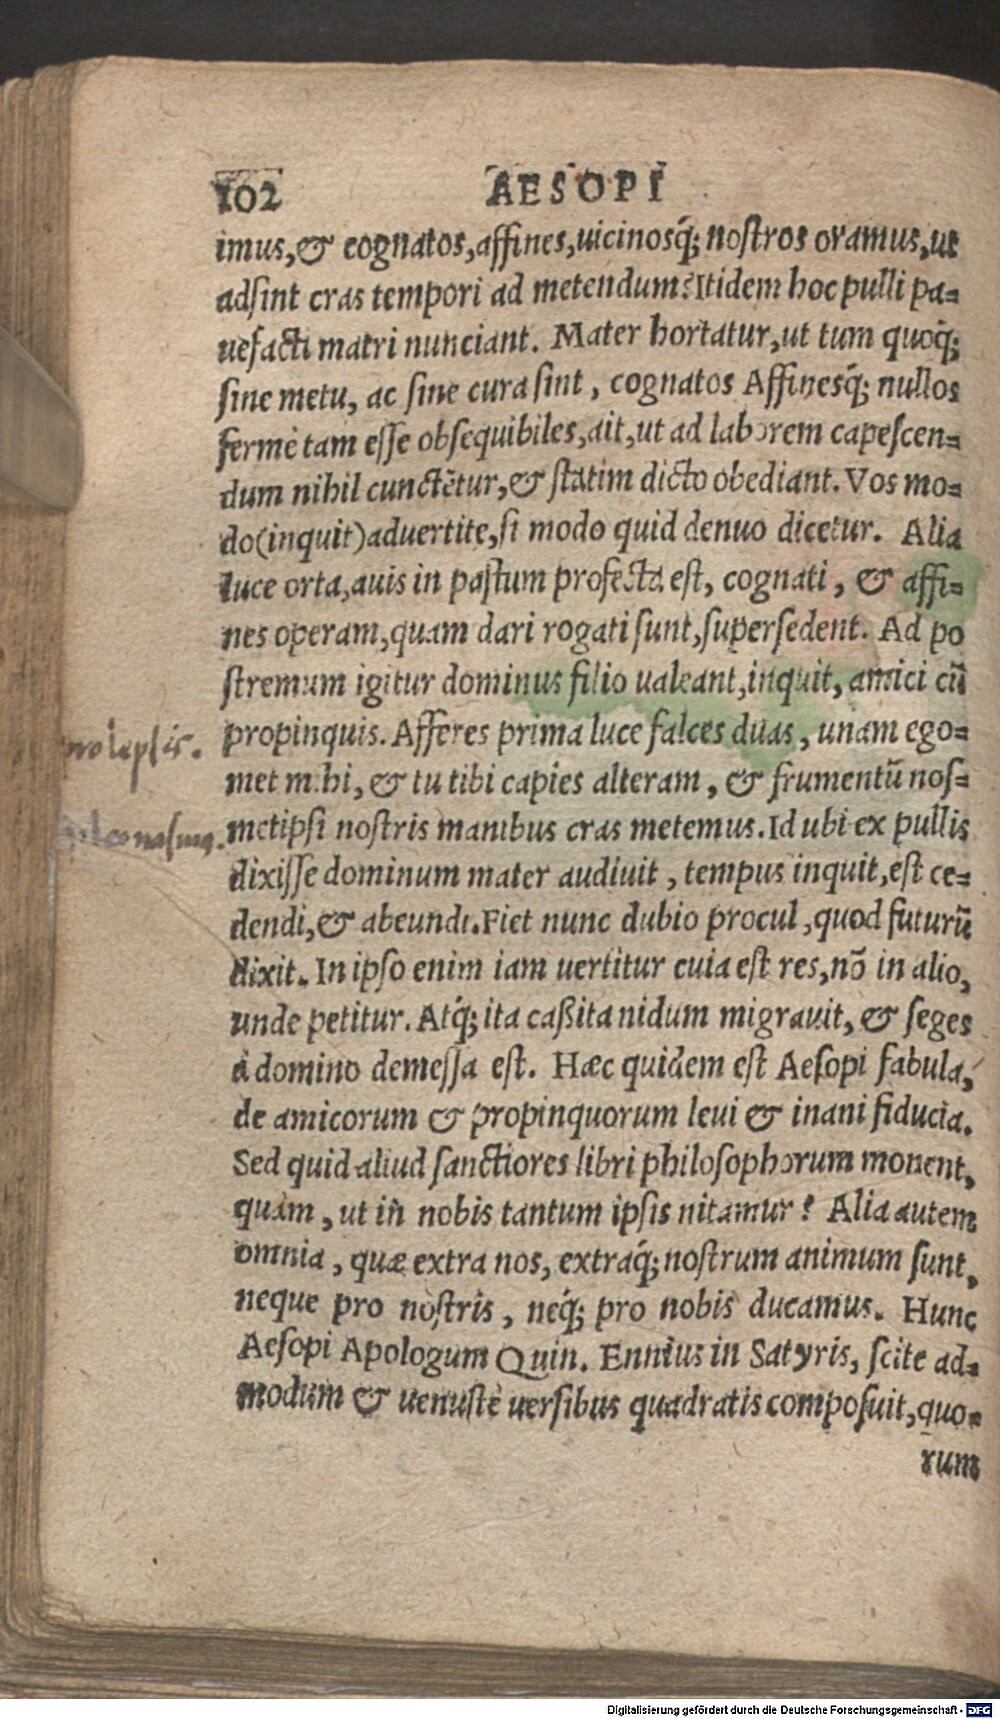 102 AESOPI
imus,& cognatos,affines,uicinosq́; nostros oramus,ut
adsint cras tempori ad metendum? Itidem hoc pulli pa=
uefacti matri nunciant. Mater hortatur,ut tum quoq́;
sine metu, ac sine cura sint, cognatos Affinesq́; nullos
fermè tam esse obsequibiles,ait,ut ad laborem capescen=
dum nihil cunctētur,& statim dicto obediant. Vos mo=
do(inquit)aduertite,si modo quid denuo dicetur. Alia
luce orta,auis in pastum profecta est, cognati, & affi=
nes operam,quam dari rogati sunt,supersedent. Ad po
stremum igitur dominus filio ualeant,inquit, amici cū
propinquis. Afferes prima luce falces duas, unam ego=
prolepsis.
met mihi, & tu tibi capies alteram, & frumentū nos=
metipsi nostris manibus cras metemus. Id ubi ex pullis
dixisse dominum mater audiuit, tempus inquit,est ce=
dendi,& abeundi. Fiet nunc dubio procul,quod futurū
dixit. In ipso enim iam uertitur cuia est res,nō in alio,
unde petitur. Atq́; ita caßita nidum migrauit, & seges
à domino demessa est. Hæc quidem est Aesopi fabula,
de amicorum & propinquorum leui & inani fiducia.
Sed quid aliud sanctiores libri philosophorum monent,
quàm, ut in nobis tantum ipsis nitamur? Alia autem
omnia, quæ extra nos, extraq́; nostrum animum sunt,
neque pro nostris, neq́; pro nobis ducamus. Hunc
Aesopi Apologum Quin. Ennius in Satyris, scite ad=
modum & uenustè uersibus quadratis composuit,quo=
rum
Digitalisierung gefördert durch die Deutsche Forschungsgemeinschaft - DFG